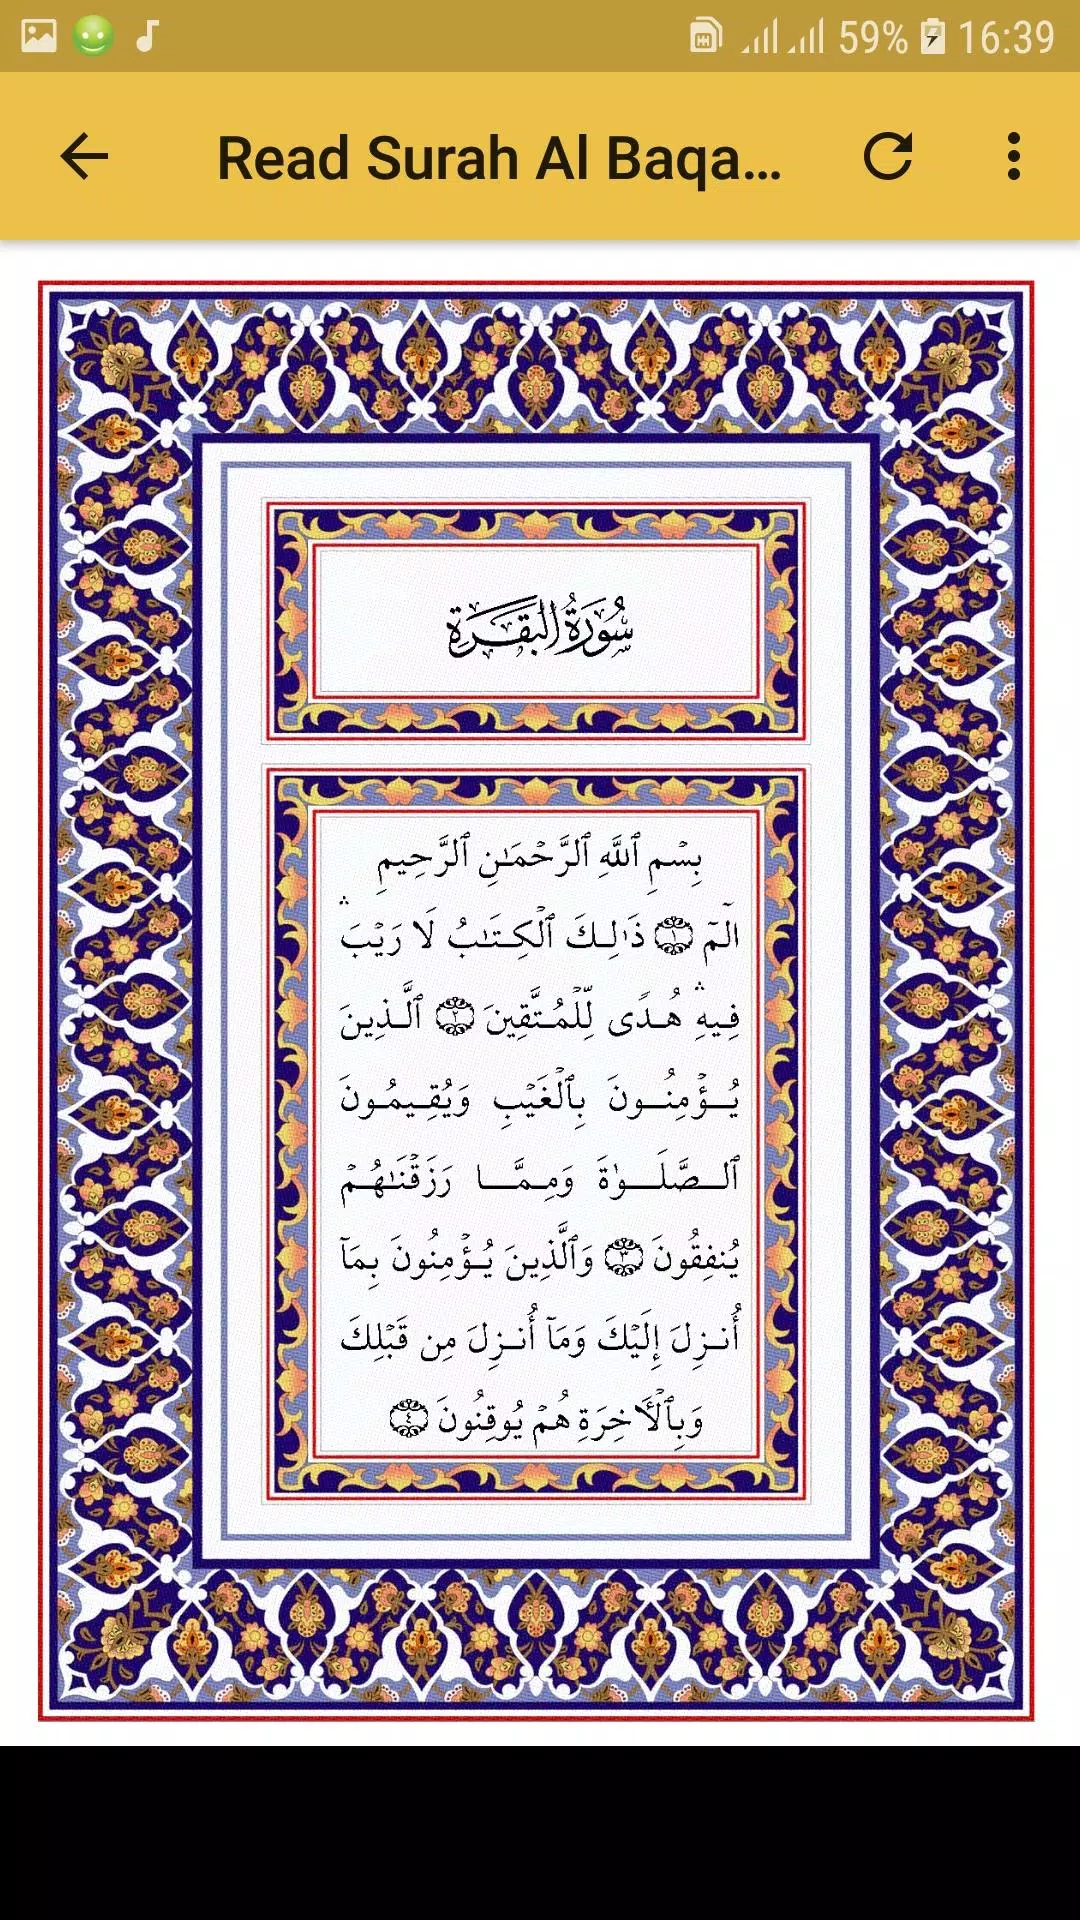 59% 16:39
Read Surah Al Baqa...
سُورَةُ الْبَقَرَةِ
بِسْمِ ٱللَّهِ ٱلرَّحْمَـٰنِ ٱلرَّحِيمِ
الٓمٓ ١ ذَٰلِكَ ٱلْكِتَـٰبُ لَا رَيْبَ ۛ
فِيهِ ۛ هُدًى لِّلْمُتَّقِينَ ٢ ٱلَّذِينَ
يُؤْمِنُونَ بِٱلْغَيْبِ وَيُقِيمُونَ
ٱلصَّلَوٰةَ وَمِمَّا رَزَقْنَـٰهُمْ
يُنفِقُونَ ٣ وَٱلَّذِينَ يُؤْمِنُونَ بِمَآ
أُنزِلَ إِلَيْكَ وَمَآ أُنزِلَ مِن قَبْلِكَ
وَبِٱلْـَٔاخِرَةِ هُمْ يُوقِنُونَ ٤